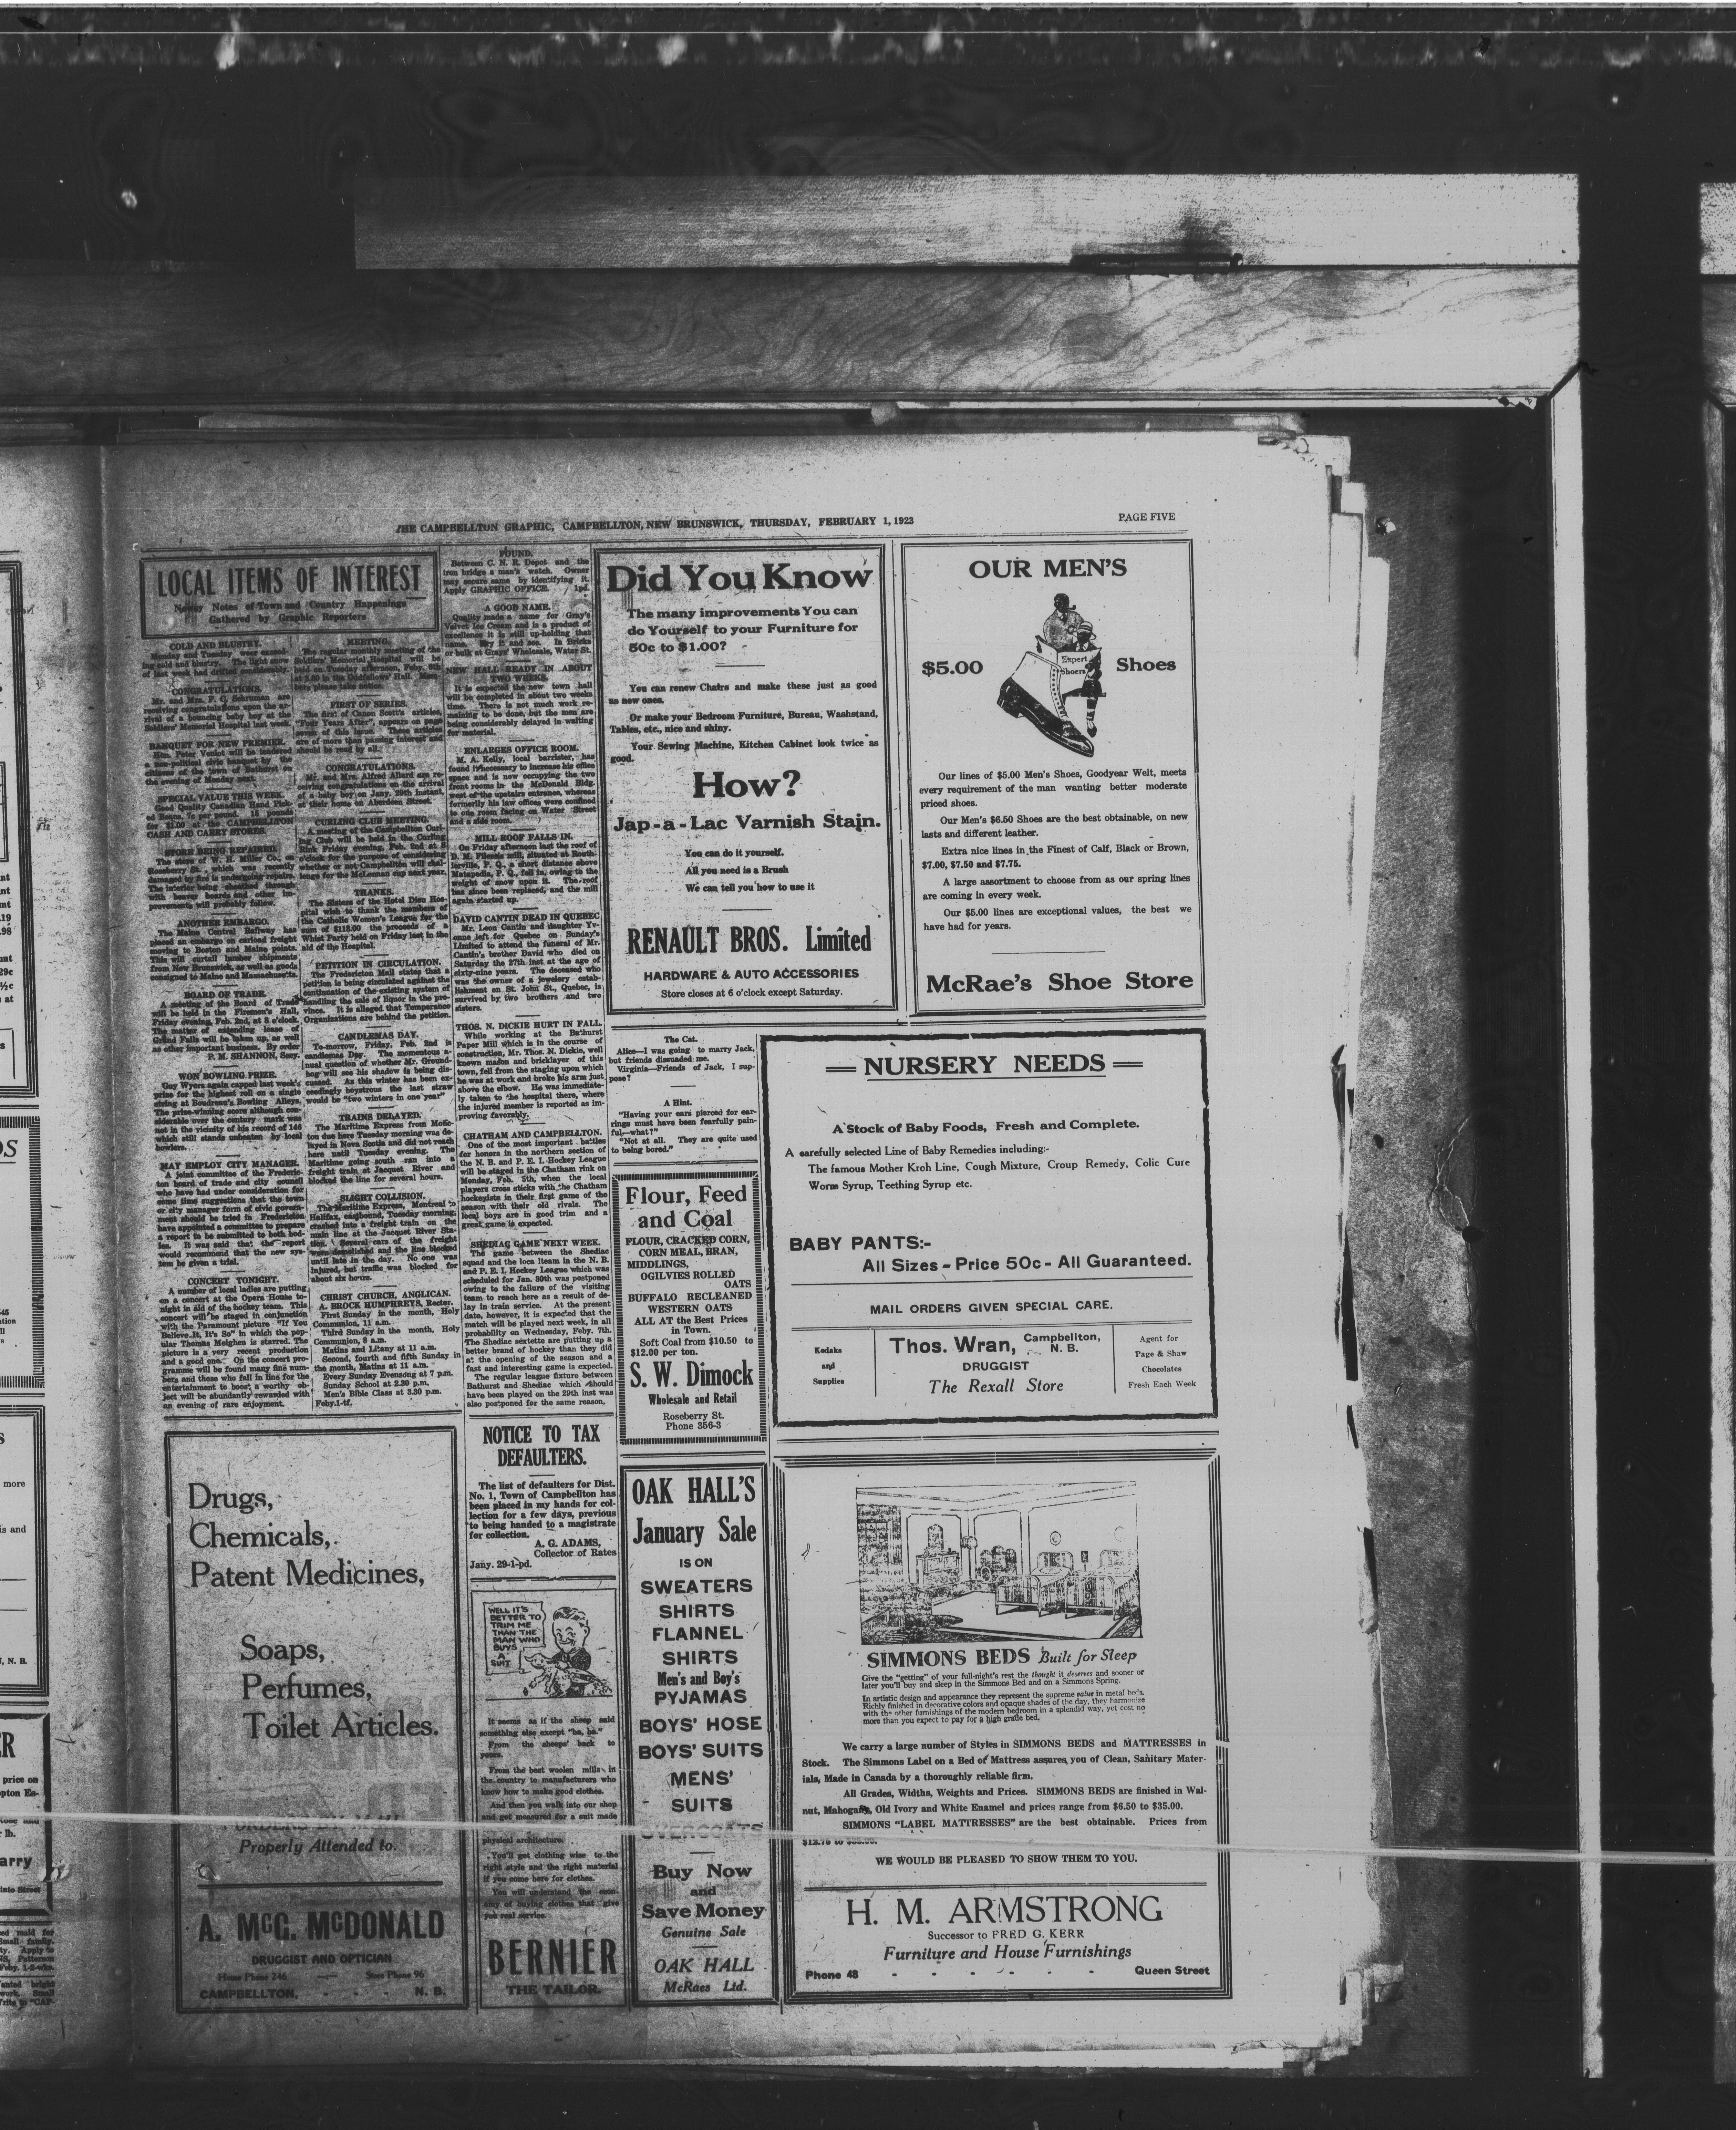 THE CAMPBELLTON GRAPHIC, CAMPBELLTON, NEW BRUNSWICK, THURSDAY, FEBRUARY 1, 1923
PAGE FIVE
LOCAL ITEMS OF INTEREST
Newsy Notes of Town and Country Happenings
Gathered by Graphic Reporters
COLD AND BLUSTRY.
Monday and Tuesday were exceed-
ing cold and blustry. The light snow
of last week had drifted considerably.
CONGRATULATIONS.
Mr. and Mrs. F. C. Schruman are
receiving congratulations upon the ar-
rival of a bouncing baby boy at the
Soldiers' Memorial Hospital last week.
BANQUET FOR NEW PREMIER.
Hon. Peter Veniot will be tendered
a non-political civic banquet by the
citizens of the town of Bathurst on
the evening of Monday next.
SPECIAL VALUE THIS WEEK.
Good Quality Canadian Hand Pick-
ed Beans, 7c per pound. 15 pounds
for $1.00 at the CAMPBELLTON
CASH AND CARRY STORES.
STORE BEING REPAIRED.
The store of W. H. Miller Co., on
Roseberry St., which was recently
damaged by fire is undergoing repairs.
The interior being sheathed through
with beaver boards and other im-
provements will probably follow.
ANOTHER EMBARGO.
The Maine Central Railway has
placed an embargo on carload freight
moving to Boston and Maine points.
This will curtail lumber shipments
from New Brunswick, as well as goods
consigned to Maine and Massachusetts.
BOARD OF TRADE.
A meeting of the Board of Trade
will be held in the Firemen's Hall,
Friday evening, Feb. 2nd, at 8 o'clock.
The matter of extending lease of
Grand Falls will be taken up, as well
as other important business. By order
P. M. SHANNON, Secy.
WON BOWLING PRIZE.
Guy Wyers again capped last week's
prize for the highest roll on a single
string at Boudreau's Bowling Alleys.
The prize-winning score although con-
siderable over the century mark was
not in the vicinity of his record of 146
which still stands unbeaten by local
bowlers.
MAY EMPLOY CITY MANAGER.
A joint committee of the Frederic-
ton board of trade and city council
who have had under consideration for
some time suggestions that the town
or city manager form of civic govern-
ment should be tried in Fredericton
have appointed a committee to prepare
a report to be submitted to both bod-
ies. It was said that the report
would recommend that the new sys-
tem be given a trial.
CONCERT TONIGHT.
A number of local ladies are putting
on a concert at the Opera House to-
night in aid of the hockey team. This
concert will be staged in conjunction
with the Paramount picture "If You
Believe It, It's So" in which the pop-
ular Thomas Meighen is starred. The
picture is a very recent production
and a good one. On the concert pro-
gramme will be found many fine num-
bers and those who fall in line for the
entertainment to boost a worthy ob-
ject will be abundantly rewarded with
an evening of rare enjoyment.
MEETING.
The regular monthly meeting of the
Soldiers' Memorial Hospital will be
held on Tuesday afternoon, Feby. 6th
at 3.30 in the Oddfellows' Hall. Mem-
bers please take notice.
FIRST OF SERIES.
The first of Canon Scott's articles,
"Four Years After", appears on page
seven of this issue. These articles
are of more than passing interest and
should be read by all.
CONGRATULATIONS.
Mr. and Mrs. Alfred Allard are re-
ceiving congratulations on the arrival
of a baby boy on Jany. 29th instant,
at their home on Aberdeen Street.
CURLING CLUB MEETING.
A meeting of the Campbellton Curl-
ing Club will be held in the Curling
Rink Friday evening, Feb. 2nd at 8
o'clock for the purpose of considering
whether or not Campbellton will chal-
lenge for the McLennan cup next year.
THANKS.
The Sisters of the Hotel Dieu Hos-
pital wish to thank the members of
the Catholic Women's League for the
sum of $118.00 the proceeds of a
Whist Party held on Friday last in the
aid of the Hospital.
PETITION IN CIRCULATION.
The Fredericton Mail states that a
petition is being circulated against the
continuation of the existing system of
handling the sale of liquor in the pro-
vince. It is alleged that Temperance
Organizations are behind the petition.
CANDLEMAS DAY.
To-morrow, Friday, Feb. 2nd is
candlemas Day. The momentous a-
nual question of whether Mr. Ground-
hog will see his shadow is being dis-
cussed. As this winter has been ex-
ceedingly boystrous the last straw
would be "two winters in one year"
TRAINS DELAYED.
The Maritime Express from Monc-
ton due here Tuesday morning was de-
layed in Nova Scotia and did not reach
here until Tuesday evening. The
Maritime going south ran into a
freight train at Jacquet River and
blocked the line for several hours.
SLIGHT COLLISION.
The Maritime Express, Montreal to
Halifax, eastbound, Tuesday morning,
crashed into a freight train on the
main line at the Jacquet River Sta-
tion. Several cars of the freight
were demolished and the line blocked
until late in the day. No one was
injured, but traffic was blocked for
about six hours.
CHRIST CHURCH, ANGLICAN.
A. BROCK HUMPHREYS, Rector.
First Sunday in the month, Holy
Communion, 11 a.m.
Third Sunday in the month, Holy
Communion, 8 a.m.
Matins and Litany at 11 a.m.
Second, fourth and fifth Sunday in
the month, Matins at 11 a.m.
Every Sunday Evensong at 7 p.m.
Sunday School at 2.30 p.m.
Men's Bible Class at 3.30 p.m.
Feby.1-tf.
FOUND.
Between C. N. R. Depot and the
iron bridge a man's watch. Owner
may secure same by identifying it.
Apply GRAPHIC OFFICE. 1pd.
A GOOD NAME.
Quality made a name for Gray's
Velvet Ice Cream and is a product of
excellence it is still up-holding that
name. Try it and see. In Bricks
or bulk at Grays' Wholesale, Water St.
NEW HALL READY IN ABOUT
TWO WEEKS.
It is expected the new town hall
will be completed in about two weeks
time. There is not much work re-
maining to be done, but the men are
being considerably delayed in waiting
for material.
ENLARGES OFFICE ROOM.
M. A. Kelly, local barrister, has
found it necessary to increase his office
space and is now occupying the two
front rooms in the McDonald Bldg.
west of the upstairs entrance, whereas
formerlly his law offices were confined
to one room facing on Water Street
and a side room.
MILL ROOF FALLS IN.
On Friday afternoon last the roof of
D. M. Fileasis mill, situated at Routh-
ierville, P. Q., a short distance above
Matapedia, P. Q., fell in, owing to the
weight of snow upon it. The roof
has since been replaced, and the mill
again started up.
DAVID CANTIN DEAD IN QUEBEC
Mr. Leon Cantin and daughter Yv-
onne left for Quebec on Sunday's
Limited to attend the funeral of Mr.
Cantin's brother David who died on
Saturday the 27th inst at the age of
sixty-nine years. The deceased who
was the owner of a jewelery estab-
lishment on St. John St., Quebec, is
survived by two brothers and two
sisters.
THOS. N. DICKIE HURT IN FALL.
While working at the Bathurst
Paper Mill which is in the course of
construction, Mr. Thos. N. Dickie, well
known mason and bricklayer of this
town, fell from the staging upon which
he was at work and broke his arm just
above the elbow. He was immediate-
ly taken to the hospital there, where
the injured member is reported as im-
proving favorably.
CHATHAM AND CAMPBELLTON.
One of the most important battles
for honors in the northern section of
the N. B. and P. E. I. Hockey League
will be staged in the Chatham rink on
Monday, Feb. 5th, when the local
players cross sticks with the Chatham
hockeyists in their first game of the
season with their old rivals. The
local boys are in good trim and a
great game is expected.
SHEDIAC GAME NEXT WEEK.
The game between the Shediac
squad and the loca lteam in the N. B.
and P. E. I. Hockey League which was
scheduled for Jan. 30th was postponed
owing to the failure of the visiting
team to reach here as a result of de-
lay in train service. At the present
date, however, it is expected that the
match will be played next week, in all
probability on Wednesday, Feby. 7th.
The Shediac sextette are putting up a
better brand of hockey than they did
at the opening of the season and a
fast and interesting game is expected.
The regular league fixture between
Bathurst and Shediac which should
have been played on the 29th inst was
also postponed for the same reason.
Did You Know
The many improvements You can
do Yourself to your Furniture for
50c to $1.00?
You can renew Chairs and make these just as good
as new ones.
Or make your Bedroom Furniture, Bureau, Washstand,
Tables, etc., nice and shiny.
Your Sewing Machine, Kitchen Cabinet look twice as
good.
How?
Jap-a-Lac Varnish Stain.
You can do it yourself.
All you need is a Brush
We can tell you how to use it
RENAULT BROS. Limited
HARDWARE & AUTO ACCESSORIES
Store closes at 6 o'clock except Saturday.
OUR MEN'S
$5.00
Expert
Shoers
Shoes
Our lines of $5.00 Men's Shoes, Goodyear Welt, meets
every requirement of the man wanting better moderate
priced shoes.
Our Men's $6.50 Shoes are the best obtainable, on new
lasts and different leather.
Extra nice lines in the Finest of Calf, Black or Brown,
$7.00, $7.50 and $7.75.
A large assortment to choose from as our spring lines
are coming in every week.
Our $5.00 lines are exceptional values, the best we
have had for years.
McRae's Shoe Store
The Cat.
Alice—I was going to marry Jack,
but friends dissuaded me.
Virginia—Friends of Jack, I sup-
pose?
A Hint.
"Having your ears pierced for ear-
rings must have been fearfully pain-
ful,—what?"
"Not at all. They are quite used
to being bored."
Flour, Feed
and Coal
FLOUR, CRACKED CORN,
CORN MEAL, BRAN,
MIDDLINGS,
OGILVIES ROLLED
OATS
BUFFALO RECLEANED
WESTERN OATS
ALL AT the Best Prices
in Town.
Soft Coal from $10.50 to
$12.00 per ton.
S. W. Dimock
Wholesale and Retail
Roseberry St.
Phone 356-3
NURSERY NEEDS
A Stock of Baby Foods, Fresh and Complete.
A carefully selected Line of Baby Remedies including:-
The famous Mother Kroh Line, Cough Mixture, Croup Remedy, Colic Cure
Worm Syrup, Teething Syrup etc.
BABY PANTS:-
All Sizes - Price 50c - All Guaranteed.
MAIL ORDERS GIVEN SPECIAL CARE.
Kodaks
and
Supplies
Thos. Wran, Campbellton, N. B.
DRUGGIST
The Rexall Store
Agent for
Page & Shaw
Chocolates
Fresh Each Week
Drugs,
Chemicals,
Patent Medicines,
Soaps,
Perfumes,
Toilet Articles.
Properly Attended to.
A. McG. McDONALD
DRUGGIST AND OPTICIAN
House Phone 246 — Store Phone 96
CAMPBELLTON, - - - N. B.
NOTICE TO TAX
DEFAULTERS.
The list of defaulters for Dist.
No. 1, Town of Campbellton has
been placed in my hands for col-
lection for a few days, previous
to being handed to a magistrate
for collection.
A. G. ADAMS,
Collector of Rates
Jany. 29-1-pd.
WELL IT'S
BETTER TO
TRIM ME
THAN THE
MAN WHO
BUYS
A
SUIT
It seems as if the sheep said
something else except "ba, ba."
From the sheeps' back to
yours.
From the best woolen mills in
the country to manufacturers who
know how to make good clothes.
And then you walk into our shop
and get measured for a suit made
physical architecture.
You'll get clothing wise to the
right style and the right material
if you come here for clothes.
You will understand the econ-
omy of buying clothes that give
you real service.
BERNIER
THE TAILOR.
OAK HALL'S
January Sale
IS ON
SWEATERS
SHIRTS
FLANNEL
SHIRTS
Men's and Boy's
PYJAMAS
BOYS' HOSE
BOYS' SUITS
MENS'
SUITS
OVERCOATS
Buy Now
and
Save Money
Genuine Sale
OAK HALL
McRaes Ltd.
SIMMONS BEDS Built for Sleep
Give the "getting" of your full-night's rest the thought it deserves and sooner or
later you'll buy and sleep in the Simmons Bed and on a Simmons Spring.
In artistic design and appearance they represent the supreme value in metal beds.
Richly finished in decorative colors and opaque shades of the day, they harmonize
with the other furnishings of the modern bedroom in a splendid way, yet cost no
more than you expect to pay for a high grade bed.
We carry a large number of Styles in SIMMONS BEDS and MATTRESSES in
Stock. The Simmons Label on a Bed of Mattress assures you of Clean, Sanitary Mater-
ials, Made in Canada by a thoroughly reliable firm.
All Grades, Widths, Weights and Prices. SIMMONS BEDS are finished in Wal-
nut, Mahogany, Old Ivory and White Enamel and prices range from $6.50 to $35.00.
SIMMONS "LABEL MATTRESSES" are the best obtainable. Prices from
WE WOULD BE PLEASED TO SHOW THEM TO YOU.
H. M. ARMSTRONG
Successor to FRED G. KERR
Furniture and House Furnishings
Phone 48 - - - - - - Queen Street